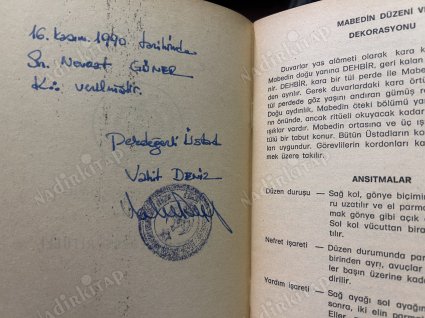 16 Kasım 1990 tarihinde
Sn. Nevzat GÜNER
K∴ verilmiştir.
Pekdeğerli Üstad
Vahit DENİZ
MABEDİN DÜZENİ VE
DEKORASYONU
Duvarlar yas alâmeti olarak kara k
Mabedin doğu yanına DEHBİR, geri kalan
nir. DEHBİR, kara bir tül perde ile Mabe
den ayrılır. Gerek duvarlardaki kara örtü
tül perdede göz yaşını andıran gümüş re
Doğu aydınlık, Mabedin öteki bölümü yar
ın önünde, ancak ritüeli okuyacak kadar
ışıklar vardır. Mabedin ortasına ve üç ış
tülü bir tabut konur. Bütün Üstadların ko
ları uygundur. Görevlilerin kordonları ka
mek üzere takılır.
ANSITMALAR
Düzen duruşu — Sağ kol, gönye biçimin
ru uzatılır ve el parma
mak gönye gibi açık
Sol kol vücuttan bira
tılır.
Nefret işareti — Düzen durumunda par
birinden ayrı, avuçlar
ler başın üzerine kade
dirilir.
Yardım işareti — Sağ ayağı sol ayağın
sonra, iki elin parma
Eller